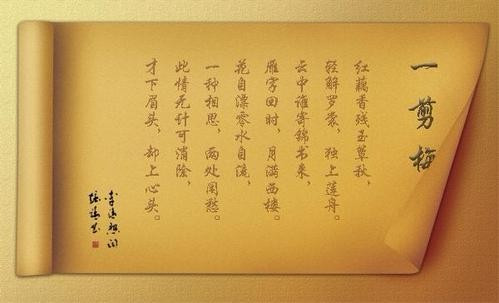 一剪梅
红藕香残玉簟秋，
轻解罗裳，独上莲舟。
云中谁寄锦书来，
雁字回时，月满西楼。
花自漂零水自流，
一种相思，两处闲愁。
此情无计可消除，
才下眉头，却上心头。
李清照词